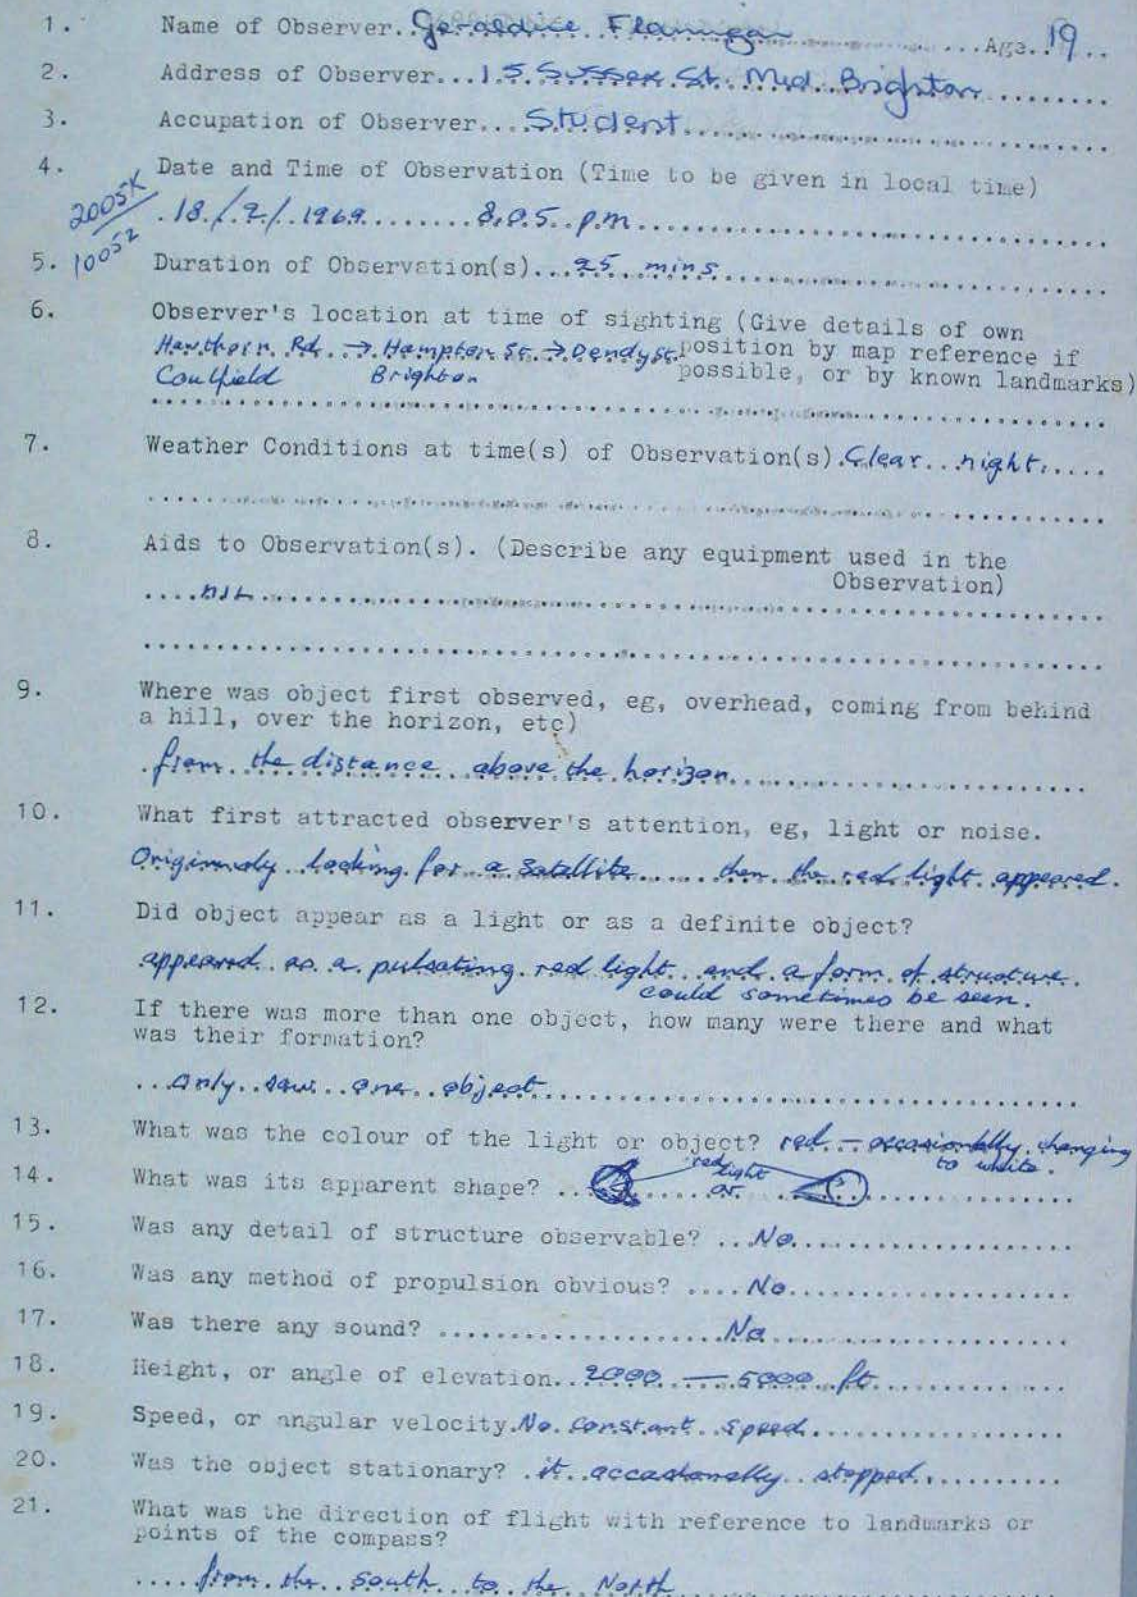 1. Name of Observer..Geraldine Flannigan...Age..19..
2. Address of Observer...15 Sussex St. Mid. Brighton........
3. Accupation of Observer....Student..................
4. Date and Time of Observation (Time to be given in local time)
2005K
.18./.7/.1969........8.05..p.m..............................
1005Z
5. Duration of Observation(s)...25..mins..................
6. Observer's location at time of sighting (Give details of own
Hawthorn Rd. → Hampton St. → Dendy St. position by map reference if
Caulfield Brighton possible, or by known landmarks)
7. Weather Conditions at time(s) of Observation(s).Clear...night.....
8. Aids to Observation(s). (Describe any equipment used in the
Observation)
....NIL..................
9. Where was object first observed, eg, overhead, coming from behind
a hill, over the horizon, etc)
.from the distance above the horizon..................
10. What first attracted observer's attention, eg, light or noise.
Originally looking for a satellite...... then the red light appeared.
11. Did object appear as a light or as a definite object?
appeared as a pulsating red light and a form of structure
could sometimes be seen.
12. If there was more than one object, how many were there and what
was their formation?
...Only saw one object..................
13. What was the colour of the light or object? red - occasionally changing
to white.
14. What was its apparent shape? ... red light or ...
15. Was any detail of structure observable? ...No..................
16. Was any method of propulsion obvious? ....No..................
17. Was there any sound? ....................No..................
18. Height, or angle of elevation..2000 — 5000 ft..............
19. Speed, or angular velocity.No constant speed..................
20. Was the object stationary? .it occasionally stopped...........
21. What was the direction of flight with reference to landmarks or
points of the compass?
.....from the south to the North..................